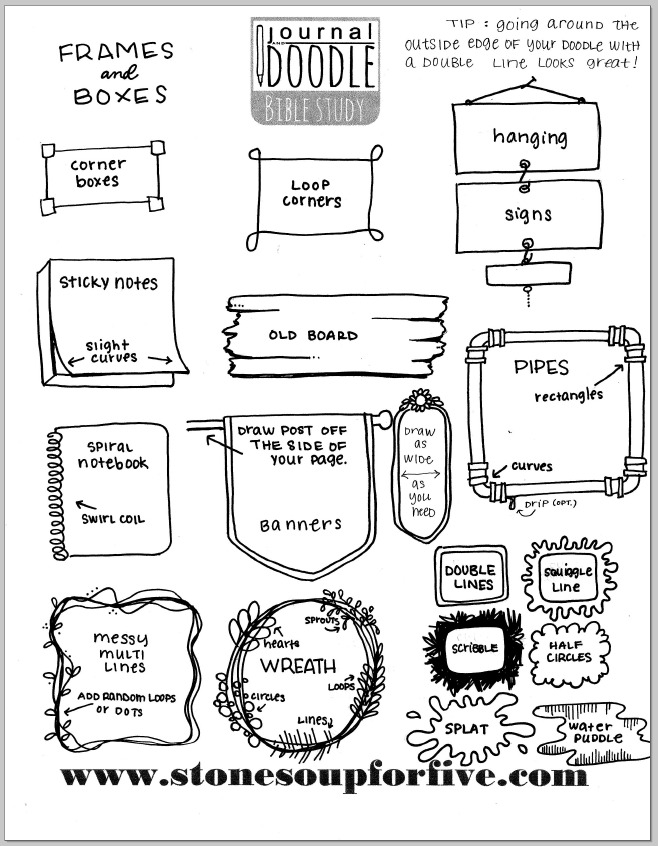 FRAMES
and
BOXES
journal
AND
DOODLE
BIBLE STUDY
TIP : going around THE
outside edge of your DOODLE WITH
a DOUBLE LINE LOOKS great!
corner
boxes
LOOP
corners
hanging
signs
STICKY NOTES
slight
curves
OLD BOARD
PIPES
rectangles
curves
DRIP (OPT.)
SPIRAL
notebook
SWIRL COIL
DRAW POST OFF
THE SIDE OF
your PAGE.
Banners
DRAW
as
WIDE
as
you
need
DOUBLE
LINES
squiggle
Line
scribble
HALF
CIRCLES
messy
multi
Lines
ADD RANDOM LOOPS
or DOTS
SPROUTS
hearts
WREATH
LOOPS
circles
Lines
SPLAT
water
PUDDLE
www.stonesoupforfive.com